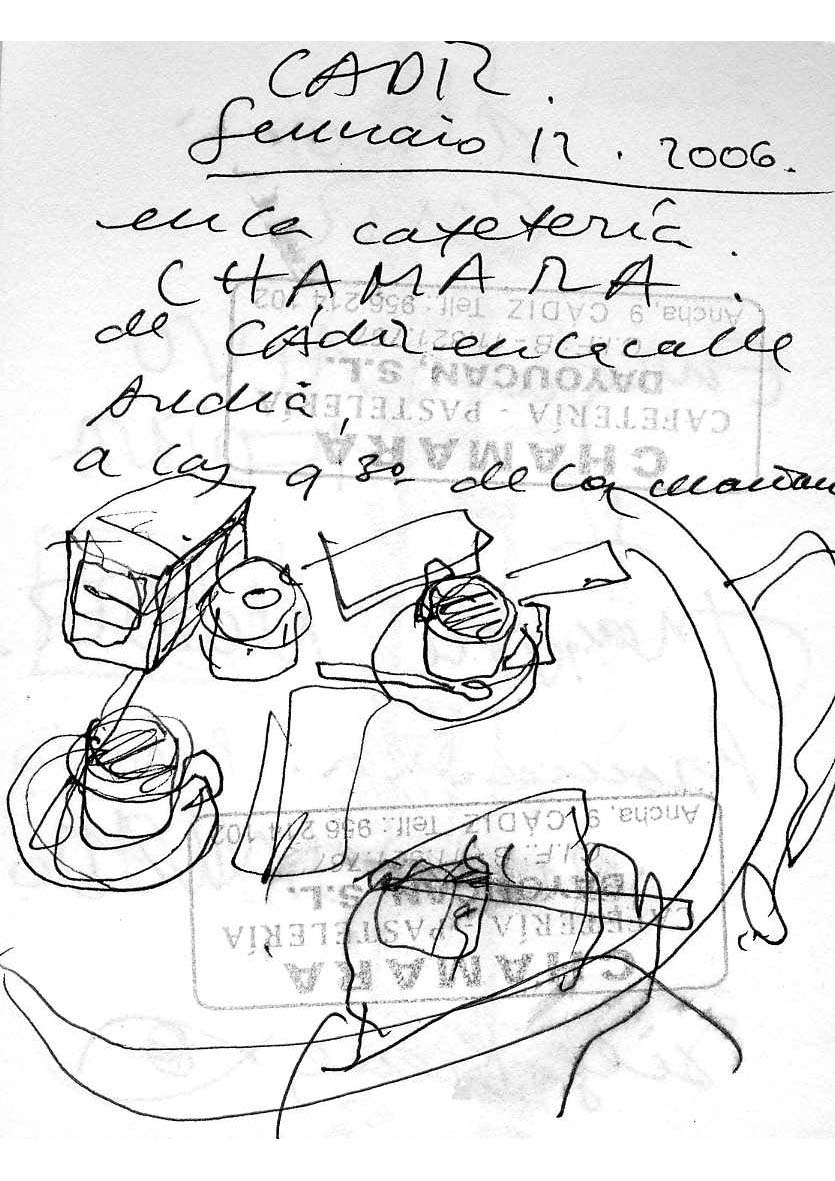 CADIZ.
Gennaio 12. 2006.
en la cafetería.
CHAMARA.
de Cádiz en la calle
Ancha,
a las 9 30 de la mañana
CHAMARA
CAFETERÍA - PASTELERÍA
DAYOUCAN, S.L.
C.I.F.: B-
Ancha, 9 CADIZ Telf.: 956 214 102
CHAMARA
CAFETERÍA - PASTELERÍA
DAYOUCAN, S.L.
C.I.F.:
Ancha, 9 CADIZ Telf.: 956 214 102